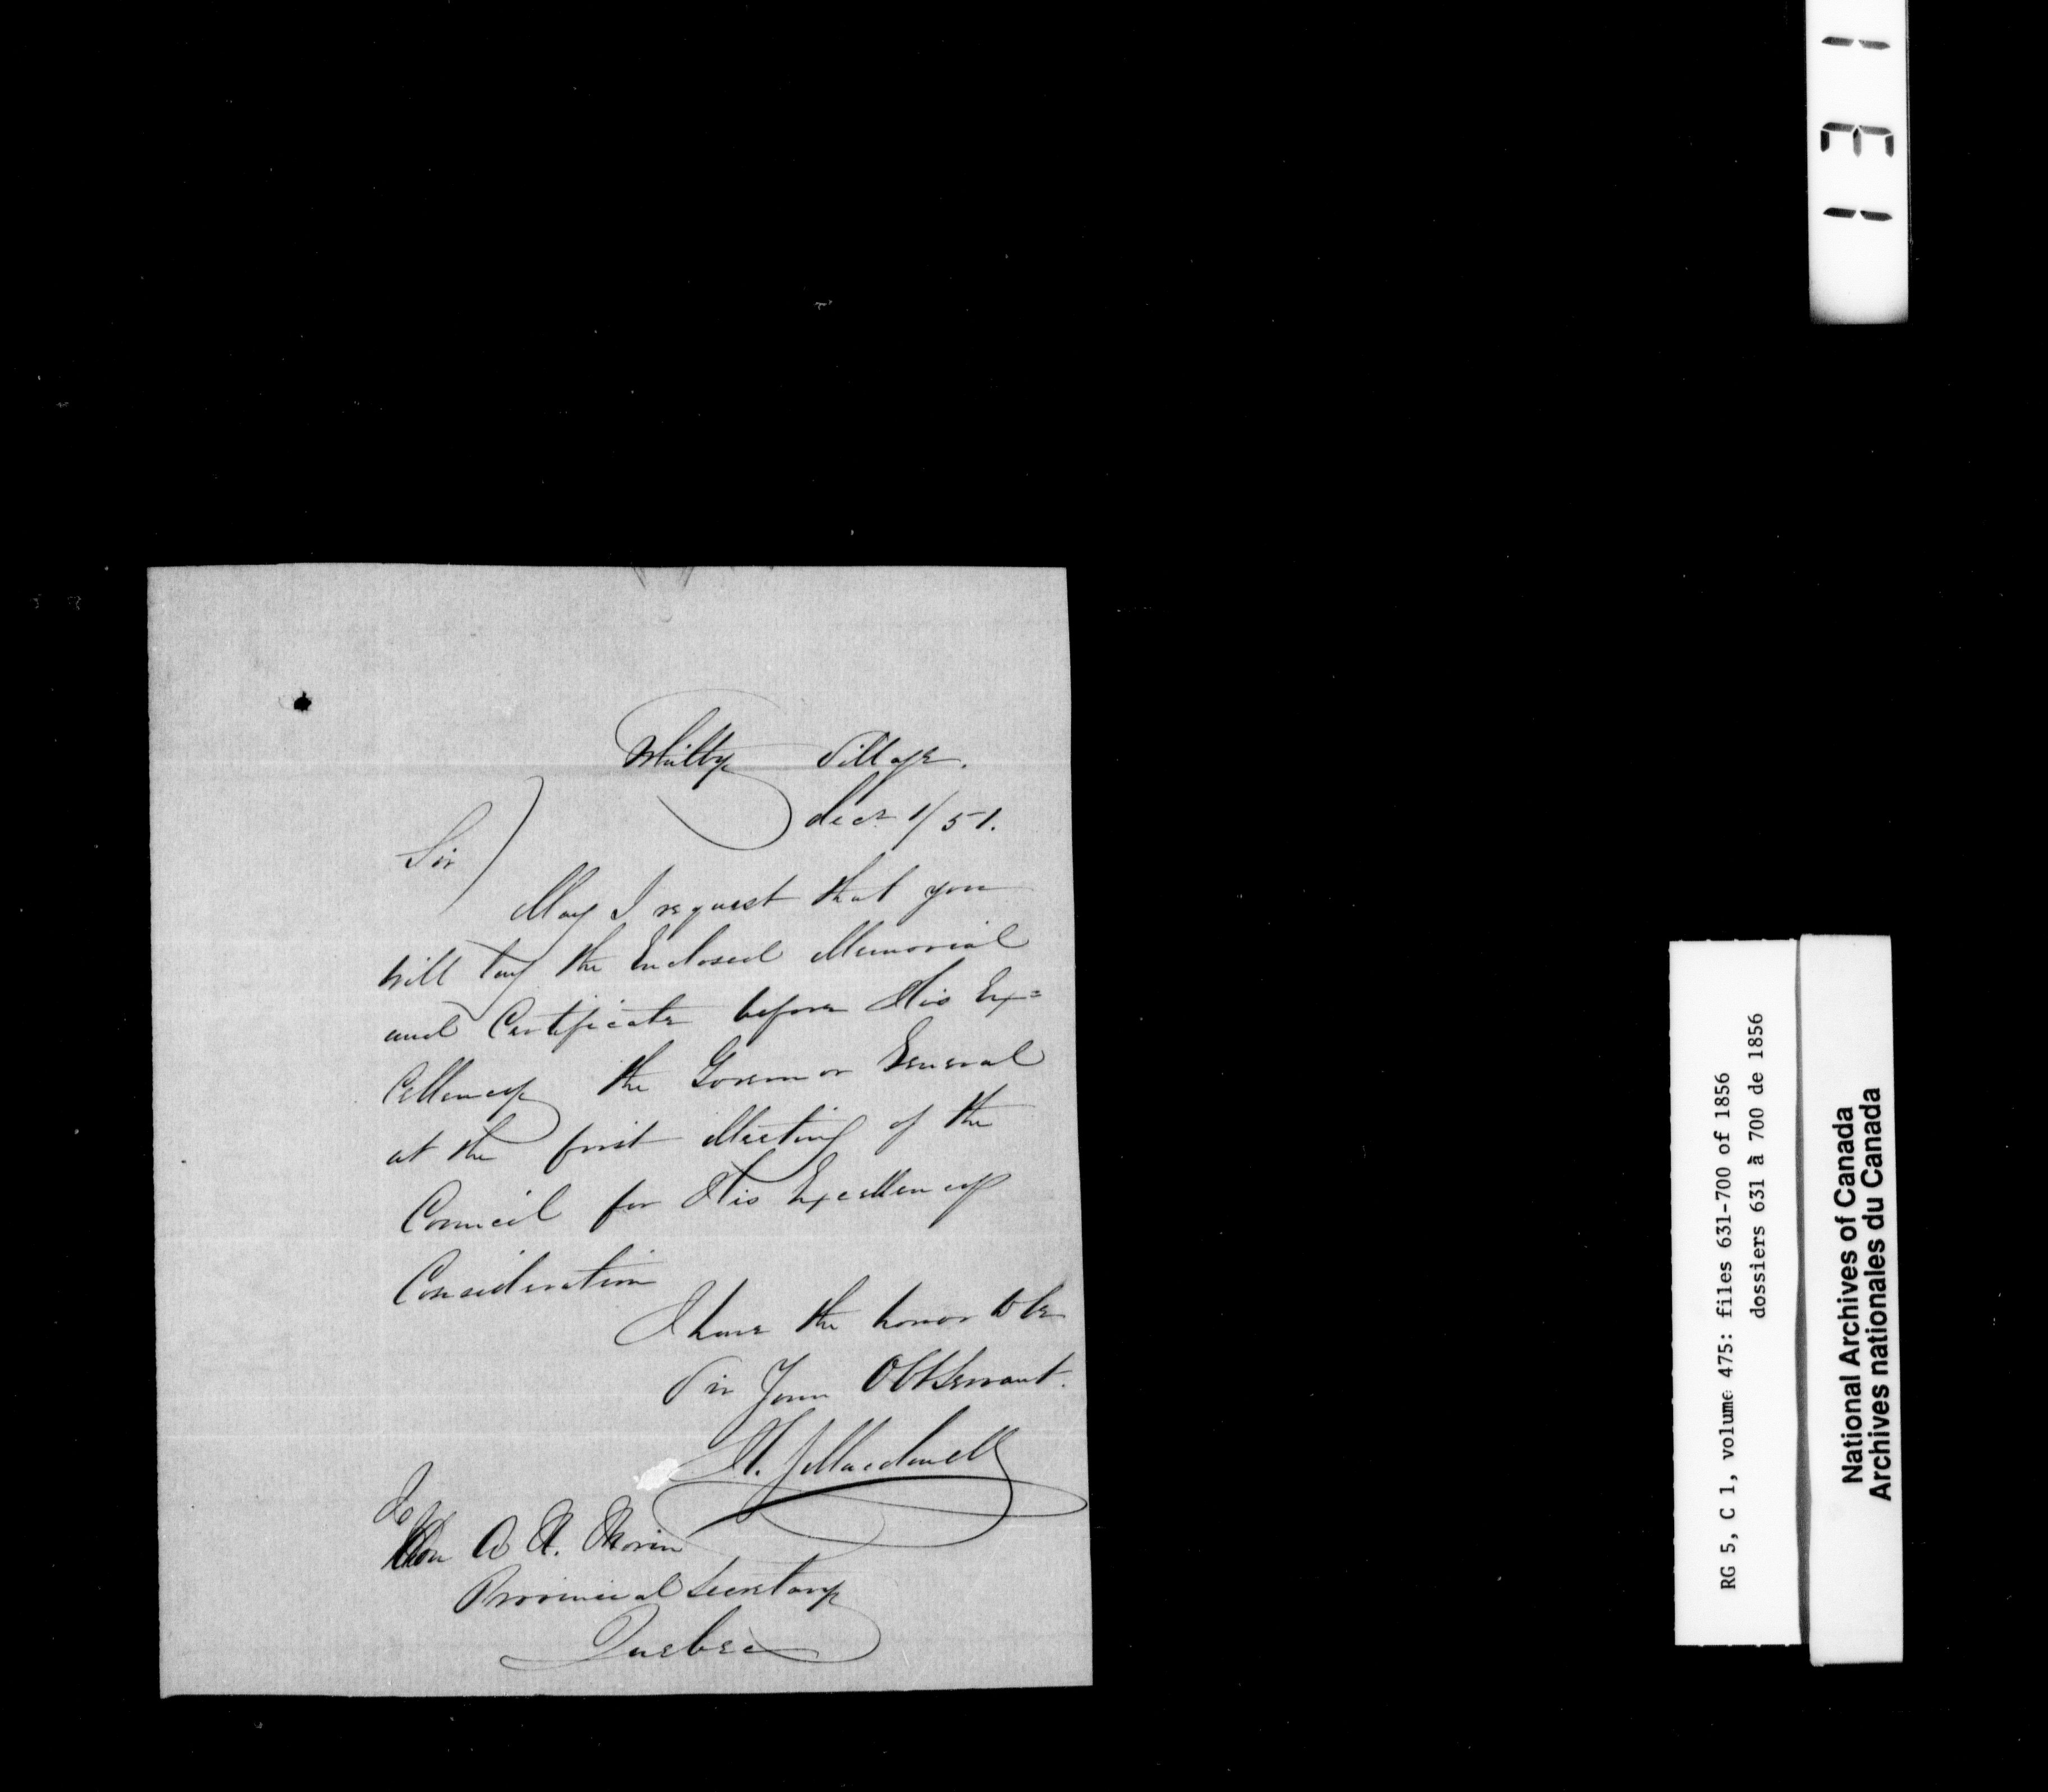 Whitby Village.
Decr 1/51.
Sir
May I request that you
will lay the Enclosed Memorial
and Certificate before His Ex=
cellency the Governor General
at the first Meeting of the
Council for His Excellency
Consideration
I have the honor to be
Sir Your Obt Servant.
H. J. Macdonell
To
Hon A N. Morin
Provincial Secretary
Quebec
131
RG 5, C 1, volume 475: files 631-700 of 1856
dossiers 631 à 700 de 1856
National Archives of Canada
Archives nationales du Canada